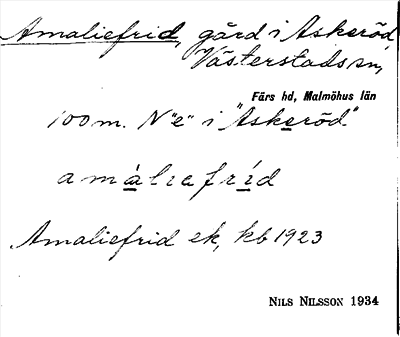 Amaliefrid, gård i Askeröd,
Västerstads sn,
Färs hd, Malmöhus län
100 m. N "e" i "Askeröd"
amàliafríd
Amaliefrid ek, kb 1923
NILS NILSSON 1934